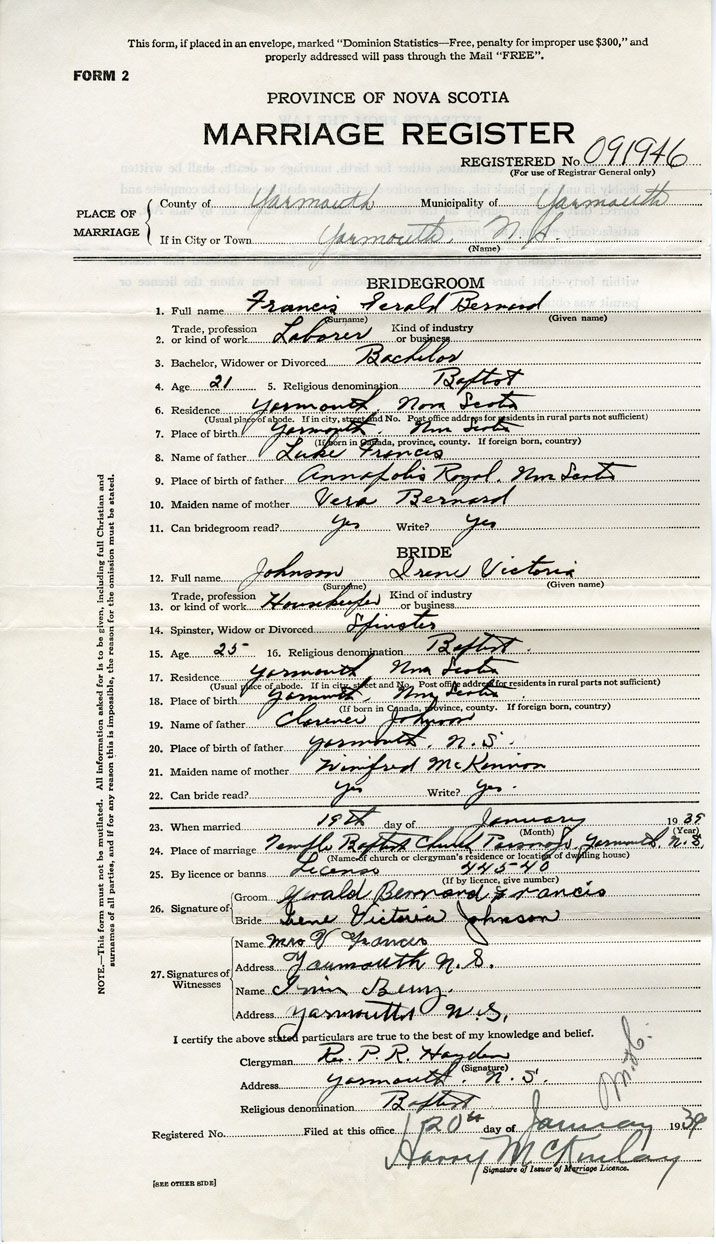 This form, if placed in an envelope, marked "Dominion Statistics—Free, penalty for improper use $300," and
properly addressed will pass through the Mail "FREE".
FORM 2
PROVINCE OF NOVA SCOTIA
MARRIAGE REGISTER
REGISTERED No 091946
(For use of Registrar General only)
PLACE OF MARRIAGE
County of Yarmouth Municipality of Yarmouth
If in City or Town Yarmouth, N.S.
(Name)
BRIDEGROOM
1. Full name Francis Gerald Bernard
(Surname) (Given name)
2. Trade, profession or kind of work Laborer Kind of industry or business
3. Bachelor, Widower or Divorced Bachelor
4. Age 21 5. Religious denomination Baptist
6. Residence Yarmouth, Nova Scotia
(Usual place of abode. If in city, street and No. Post office address for residents in rural parts not sufficient)
7. Place of birth Yarmouth, Nova Scotia
(If born in Canada, province, county. If foreign born, country)
8. Name of father Luke Francis
9. Place of birth of father Annapolis Royal, Nova Scotia
10. Maiden name of mother Vera Bernard
11. Can bridegroom read? Yes Write? Yes
BRIDE
12. Full name Johnson Irene Victoria
(Surname) (Given name)
13. Trade, profession or kind of work Housekeeper Kind of industry or business
14. Spinster, Widow or Divorced Spinster
15. Age 25 16. Religious denomination Baptist
17. Residence Yarmouth Nova Scotia
(Usual place of abode. If in city, street and No. Post office address for residents in rural parts not sufficient)
18. Place of birth Yarmouth, Nova Scotia
(If born in Canada, province, county. If foreign born, country)
19. Name of father Clarence Johnson
20. Place of birth of father Yarmouth, N.S.
21. Maiden name of mother Winifred McKinnon
22. Can bride read? Yes Write? Yes.
23. When married 19th day of January 1939
(Month) (Year)
24. Place of marriage Temple Baptist Church Parsonage, Yarmouth, N.S.
(Name of church or clergyman's residence or location of dwelling house)
25. By licence or banns License 44540
(If by licence, give number)
26. Signature of
Groom Gerald Bernard Francis
Bride Irene Victoria Johnson
27. Signatures of Witnesses
Name Mrs V Francis
Address Yarmouth N.S.
Name
Address Yarmouth N.S.
I certify the above stated particulars are true to the best of my knowledge and belief.
Clergyman Rev. P. R. Hayden
(Signature)
Address Yarmouth, N.S.
Religious denomination Baptist
Registered No. Filed at this office 20th day of January 1939
Harry McKinlay
Signature of Issuer of Marriage Licence.
[SEE OTHER SIDE]
NOTE.—This form must not be mutilated. All information asked for is to be given, including full Christian and
surnames of all parties, and if for any reason this is impossible, the reason for the omission must be stated.